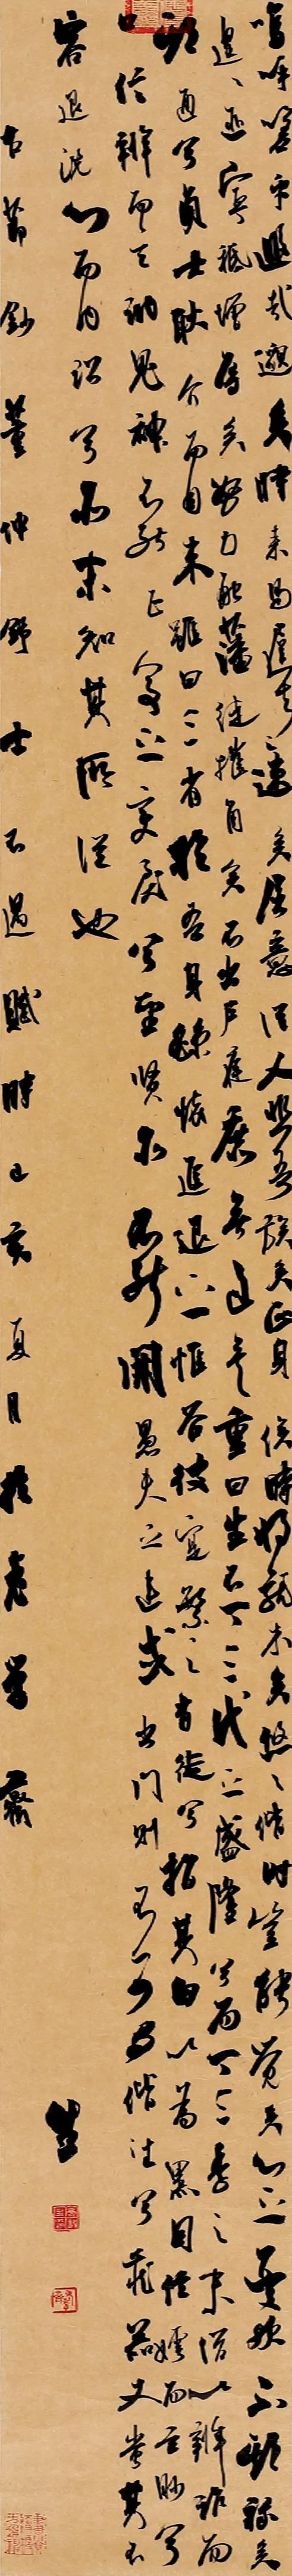 嗚呼嗟乎遐哉邈矣時來曷遲去之速矣屈意從人悲吾族矣正身俟時將就木矣悠悠偕時豈能覺矣心之憂歟不期祿矣
遑遑匪寧秖增辱矣努力觸藩徒摧角矣不出戶庭庶無過矣重曰生不丁三代之盛隆兮而丁三季之末俗以辯詐而
期通兮貞士耿介而自束雖日三省於吾身繇懷進退之惟谷彼寔繁之有徒兮指其白以為黑目信嫮而言眇兮
口信辯而言訥鬼神不能正人事之變戾兮聖賢亦不能開愚夫之違惑出門則不可與偕往兮藏器又蚩其不
容退洗心而內訟兮亦未知其所從也
鈔董仲舒士不遇賦時己亥夏月於齋
生